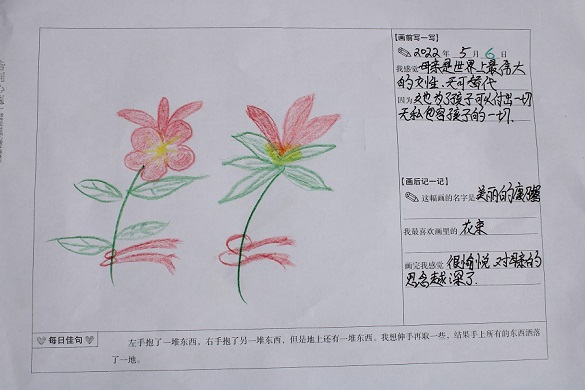 【画前写一写】
2022年 5月 6日
我感觉 母亲是世界上最伟大
的女性、无可替代
因为 她为了孩子可以付出一切
无私包容孩子的一切.
【画后记一记】
这幅画的名字是 美丽的康乃馨
我最喜欢画里的 花束
画完我感觉 很愉悦 对母亲的
思念越深了.
每日佳句
左手抱了一堆东西,右手抱了另一堆东西,但是地上还有一堆东西。我想伸手再取一些,结果手上所有的东西洒落
了一地。